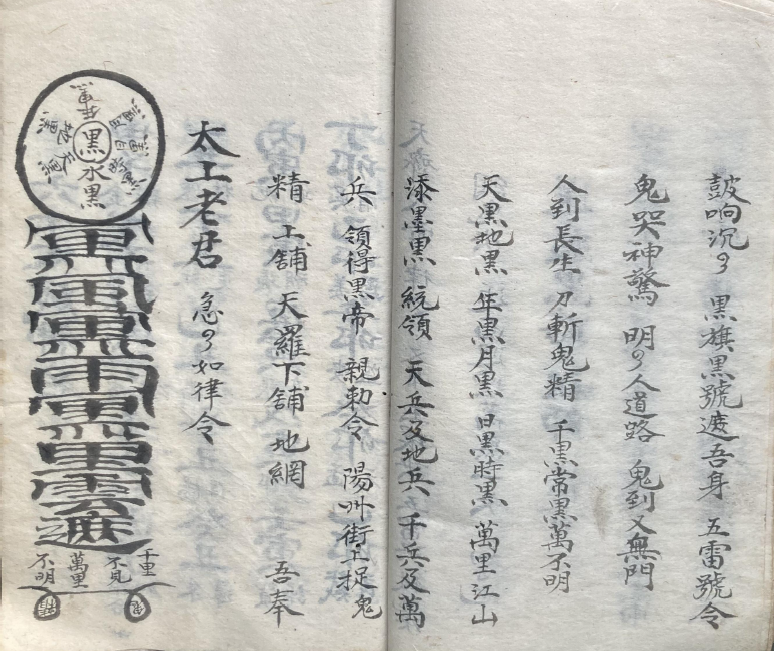 鼓响沉々 黑旗黑號遮吾身 五雷號令
鬼哭神驚 明々人道路 鬼到又無門
人到長生 刀斬鬼精 千黑常黑萬不明
天黑地黑 年黑月黑 日黑時黑 萬里江山
漆墨黑 統領 天兵及地兵 千兵及萬
兵 領得黑帝 親勅令 陽州街上捉鬼
精 上舖 天羅下舖 地網 吾奉
太上老君 急々如律令
黑
水黑
天黑
地黑
遮
千里
不見
萬里
不明